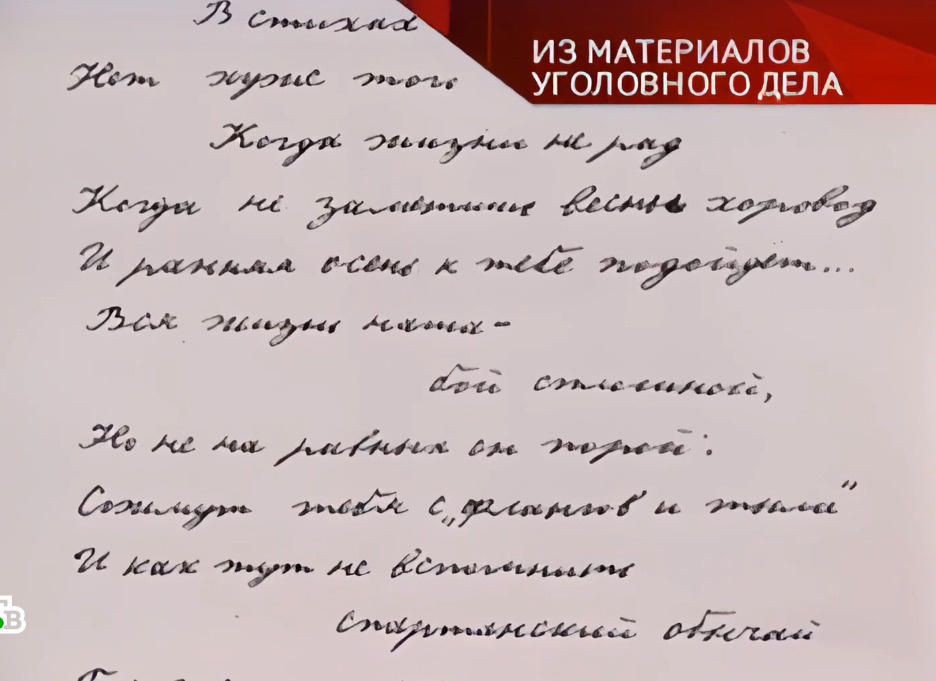 В стихах
ИЗ МАТЕРИАЛОВ
УГОЛОВНОГО ДЕЛА
Нет хуже того
Когда жизни не рад
Когда не заметишь весны хоровод
И ранняя осень к тебе подойдет...
Вся жизнь наша -
бой сплошной,
Но не на равных он порой:
Сожмут тебя с „флангов и тыла"
И как тут не вспомнить
спартанский обычай